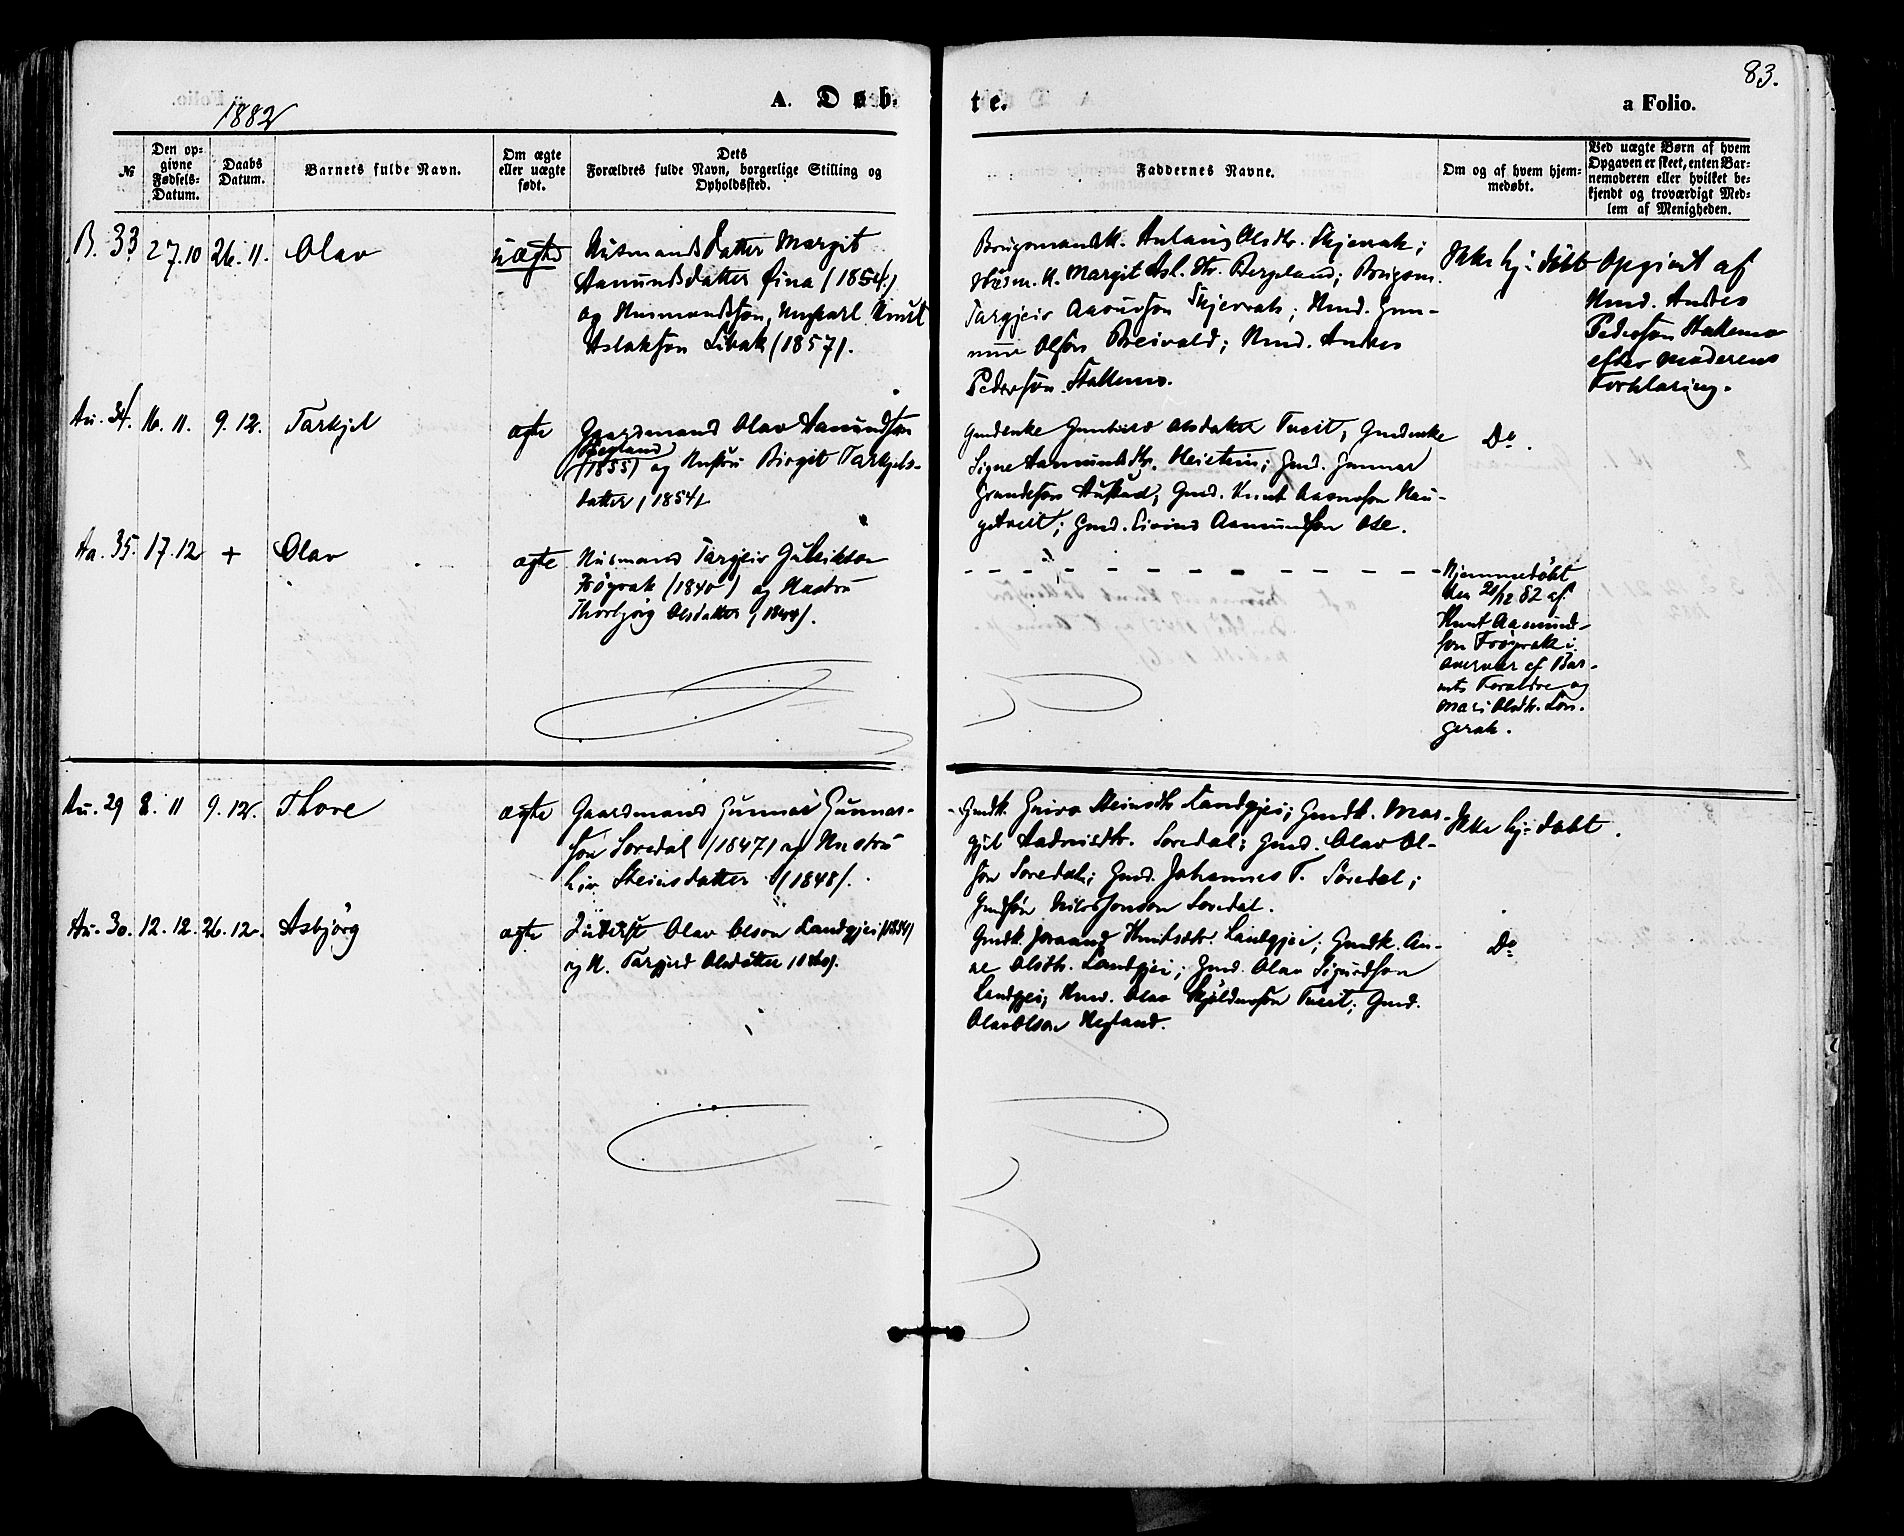 83.
1882
A. Døb-
te.
a Folio.
№
Den op-
givne
Fødsels-
Datum.
Daabs
Datum.
Barnets fulde Navn.
Om ægte
eller uægte
født.
Dets
Forældres fulde Navn, borgerlige Stilling og
Opholdssted.
Faddernes Navne.
Om og af hvem hjem-
medøbt.
Ved uægte Børn af hvem
Opgaven er skeet, enten Bar-
nemoderen eller hvilket be-
kjendt og troværdigt Med-
lem af Menigheden.
B. 33 27.10 26.11. Olav uægte
Husmandsdatter Margit
Aamundsdatter Øina (1854)
og Husmandssøn, Ungkarl Knut
Aslaksøn Libak (1857).
Brugsmandsk. Olsdtr. Skjevrak;
Husm. K. Margit Asl. dtr. Bergland; Brugsm.
Targjeir Aasulfson Skjevrak; Hmd. Gun-
nar Olsøn Breivald; Hmd. Andres
Pederson Stallemo.
Ikke hj: døbt
Opgivet af
Hmd. Andres
Pederson Stallemo
efter Moderens
Forklaring.
Au. 34. 16. 11. 9. 12. Tarkjel ægte
Gaardmand Olav Aamundson
Hegland
(1855) og Hustru Birgit Tarkjels-
datter (1854)
Gmdenke Gunhild Olsdatter Tveit, Gmdenke
Signe Aamundsdtr. Heistein; Gmd. Gunnar
Austad; Gmd. Knut Hau-
getveit; Gmd. Eivind Aamundson Ose.
Do.
Aa. 35. 17. 12 + Olav ægte
Husmand Targjeir Gulleikson
Frøyrak (1840) og Hustru
Thorbjørg Olsdatter (1844).
Hjemmedøbt
den 21/12 82 af
Knut Aamund-
son Frøyrak i
Overvær af Bar-
nets Foraldre og
Mari Olsdtr. Lon-
gerak.
Au. 29 8. 11 9. 12. Thore ægte
Gaardmand Gunnar Gunnar-
son Soredal (1847) og Hustru
Liv Steinsdatter (1848).
Gmdk. Steinsdtr Landgjei; Gmdk. Mar-
git Soredal; Gmd. Olav Ol-
søn Soredal; Gmd. Johannes T. Soredal;
Gmdsøn Soredal.
Ikke hj: døbt.
Au. 30. 12. 12. 26. 12. Asbjørg ægte
Inderst Olav Olson Landgjei (1854)
og K. Targjerd Olsdatter
Gmdk. Joraand Knutsdtr. Landgjei; Gmdk. An-
ne Olsdtr. Landgjei; Gmd. Olav Sigurdson
Landgjei; Hmd. Olav Tveit; Gmd.
Olav Olson Hegland.
Do